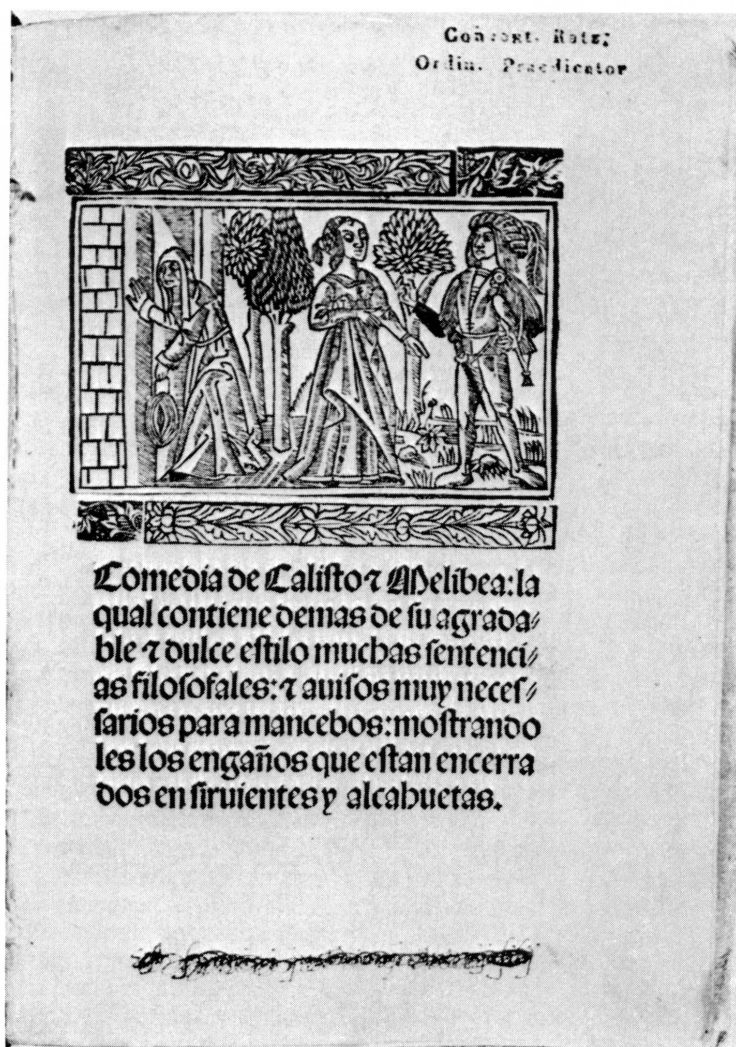 Ordin. Praedicator
Comedia de Caliſto ⁊ Melibea: la
qual contiene demas de ſu agrada⸗
ble ⁊ dulce eſtilo muchas ſentenci⸗
as filoſofales: ⁊ auiſos muy neceſ⸗
ſarios para mancebos: moſtrando
les los engaños que eſtan encerra
dos en ſiruientes y alcahuetas.